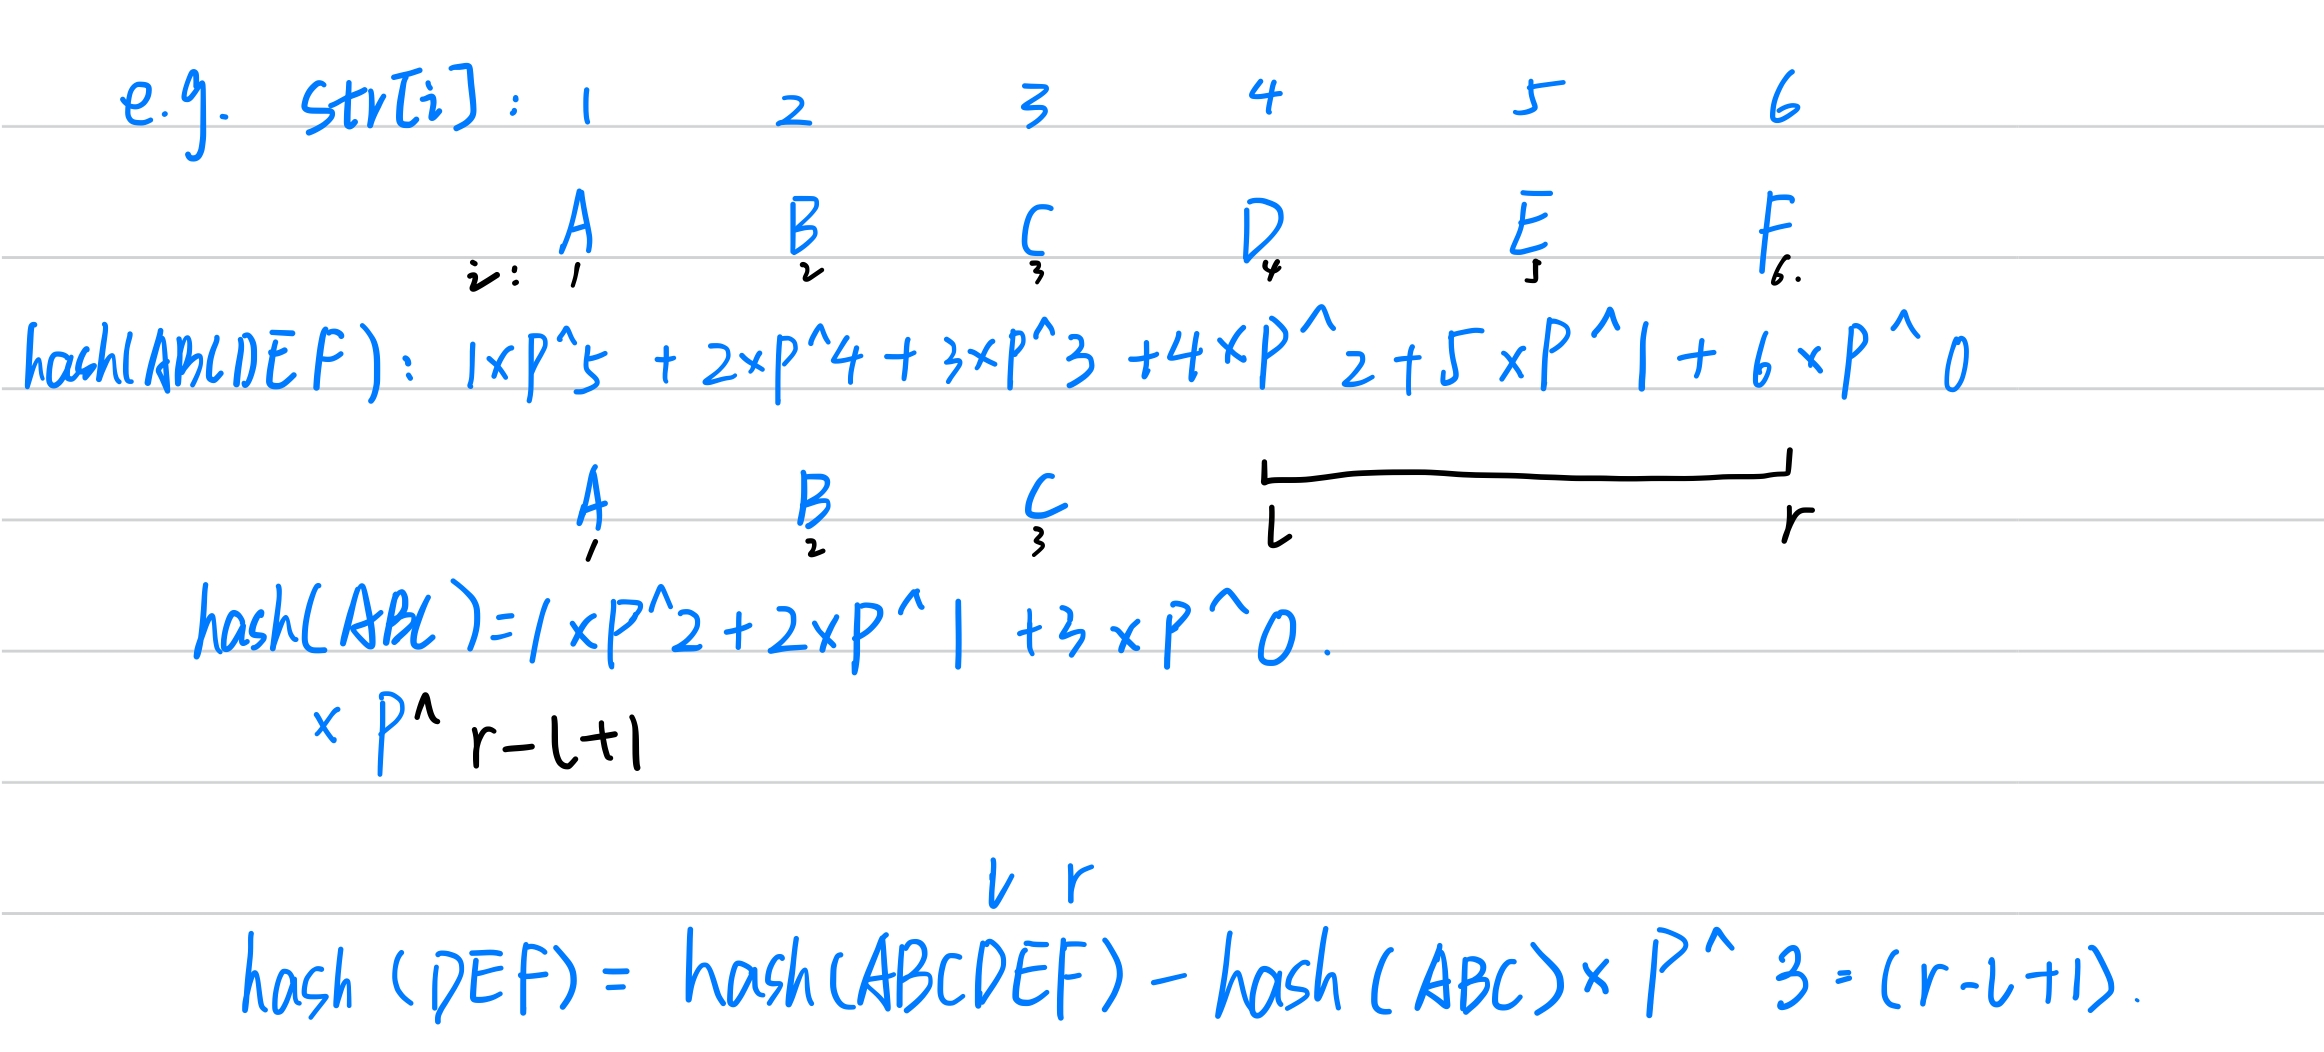 e.g. str[i]: 1 2 3 4 5 6
A B C D E F
i: 1 2 3 4 5 6.
hash(ABCDEF): 1×P^5 + 2×P^4 + 3×P^3 + 4×P^2 + 5×P^1 + 6×P^0
A B C
1 2 3 l r
hash(ABC)=1×P^2+2×P^1+3×P^0.
×P^r-l+1
l r
hash(DEF)=hash(ABCDEF)-hash(ABC)×P^3=(r-l+1).